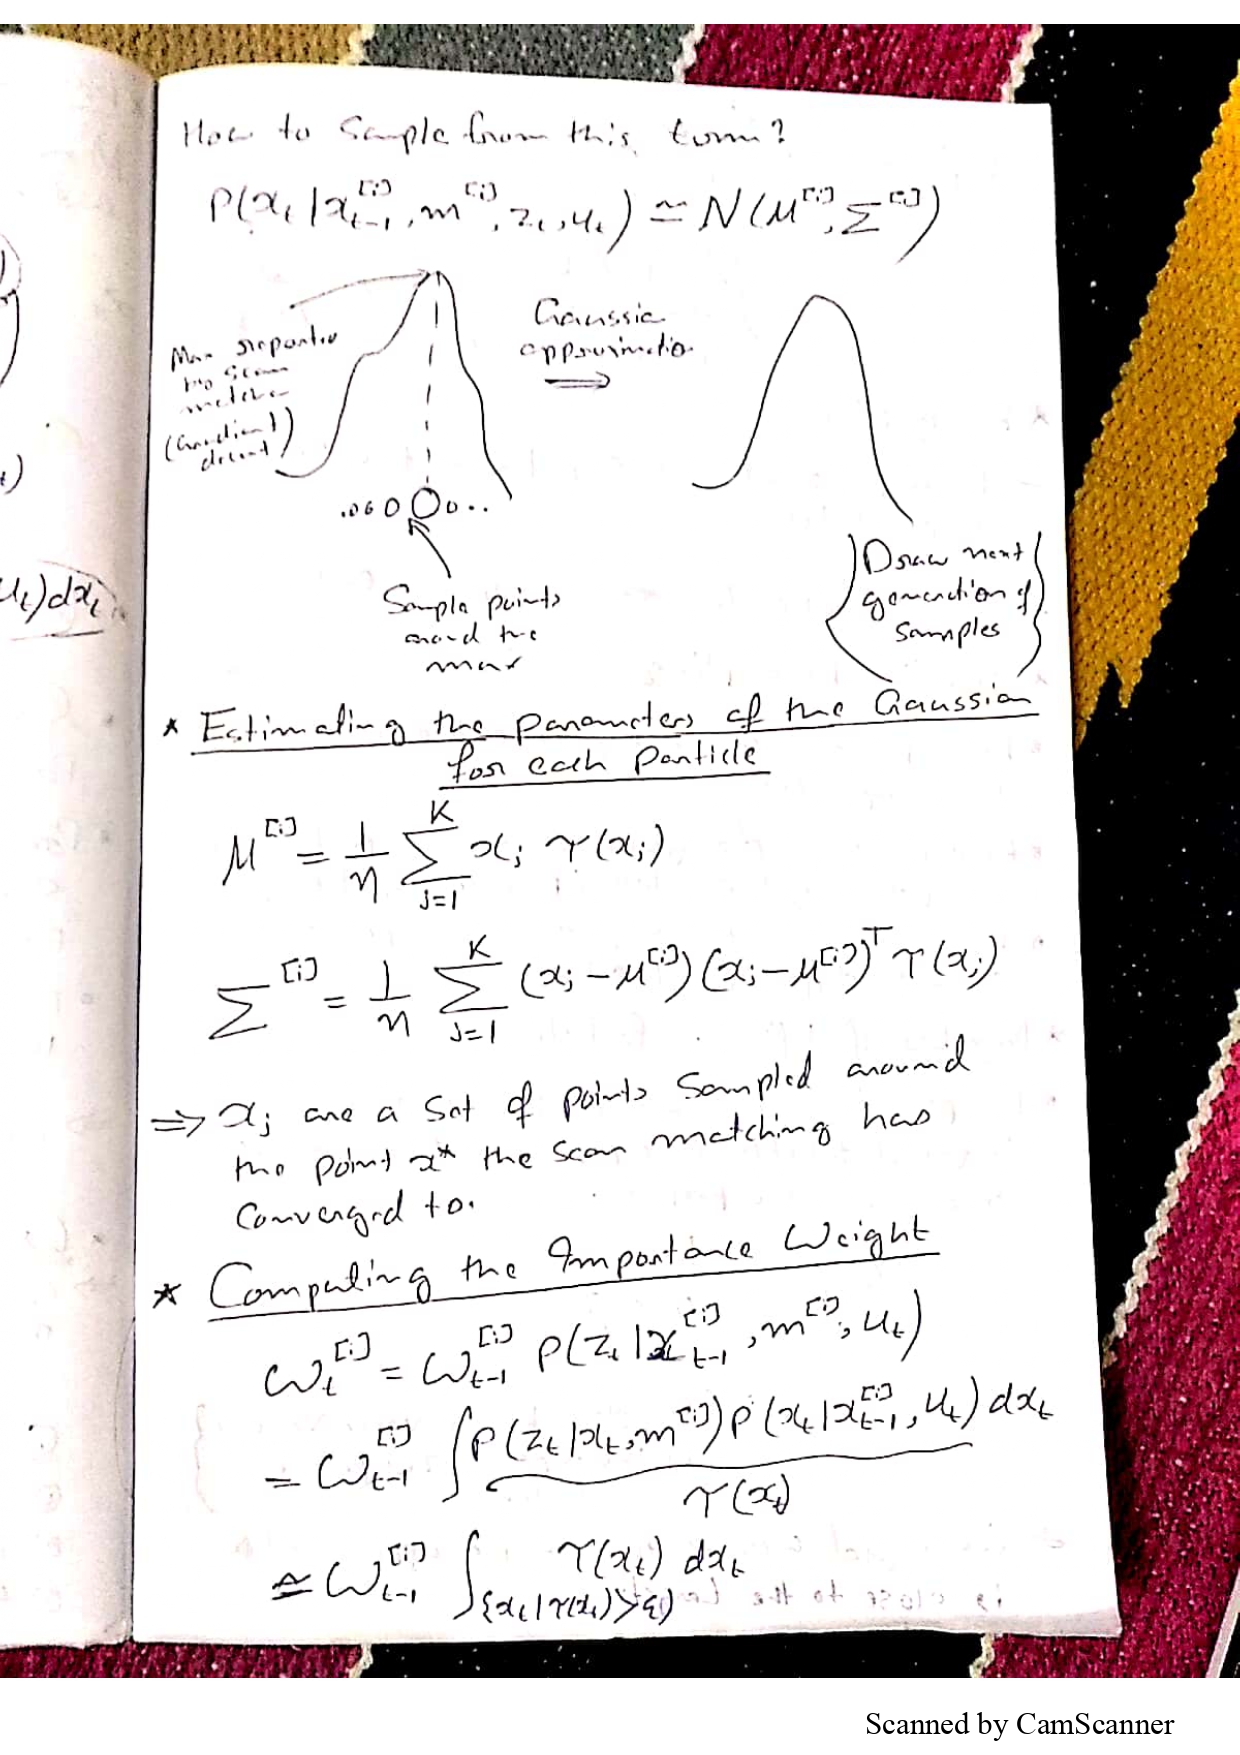 How to Sample from this term?
P(x_t | x_{t-1}^{[i]}, m^{[i]}, z_t, u_t) ≃ N(μ^{[i]}, Σ^{[i]})
Gaussia
approximatio
Max reported
by scan
(Gradient
descent)
Sample points
around the
max
Draw next
generation of
samples
* Estimating the parameters of the Gaussian
for each particle
μ^{[i]} = 1/η Σ_{j=1}^{K} x_j τ(x_j)
Σ^{[i]} = 1/η Σ_{j=1}^{K} (x_j - μ^{[i]}) (x_j - μ^{[i]})^T τ(x_j)
⇒ x_j are a set of points sampled around
the point x* the scan matching has
converged to.
* Computing the Importance Weight
ω_t^{[i]} = ω_{t-1}^{[i]} P(z_t | x_{t-1}^{[i]}, m^{[i]}, u_t)
= ω_{t-1}^{[i]} ∫ P(z_t | x_t, m^{[i]}) P(x_t | x_{t-1}^{[i]}, u_t) dx_t
τ(x_t)
≃ ω_{t-1}^{[i]} ∫_{{x_t | τ(x_t) > ε}} τ(x_t) dx_t
u_t) dx_t
Scanned by CamScanner